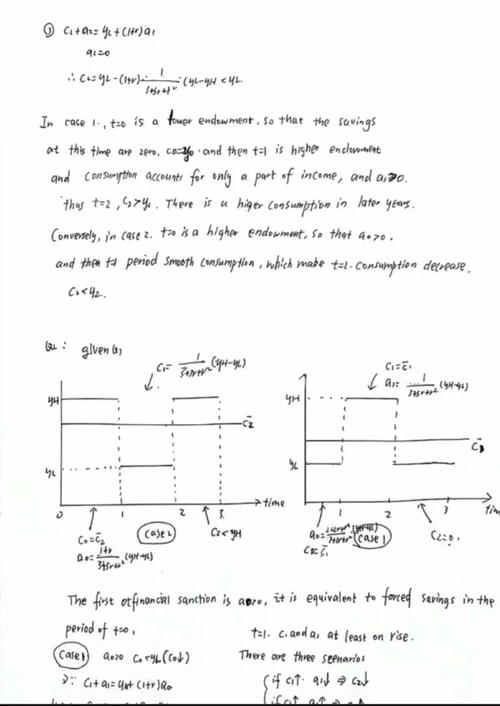 ① C₂+a₂=y₂+(1+r)a₁
a₂=0
In case 1., t=0 is a lower endowment, so that the savings
at this time are zero. and then t=1 is higher endowment
and consumption accounts for only a part of income, and a₁>0.
thus t=2, C₂>y₂. There is a higer consumption in later years.
Conversely, in case 2. t=0 is a higher endowment, so that a₀>0.
and then t=1 period smooth consumption, which make t=2. consumption decrease.
C₂<y₂.
given
yH
yL
C̄₂
0 1 2 3 time
C₀=C̄₂
case 2
C₂<yH
C₁=C̄₁
yH
yL
1 2 3 time
case 1
The first financial sanction is a₀>0, it is equivalent to forced savings in the
period of t=0.
t=1. C₁ and a₁ at least on rise.
case 1 a₀>0 C₀<yL (C₀↓)
There are three scenarios
∵ C₁+a₁=yH+(1+r)a₀
if C₁↑ a₁↓ ⇒ C₂↓
if C₁↑ a₁↑ ⇒